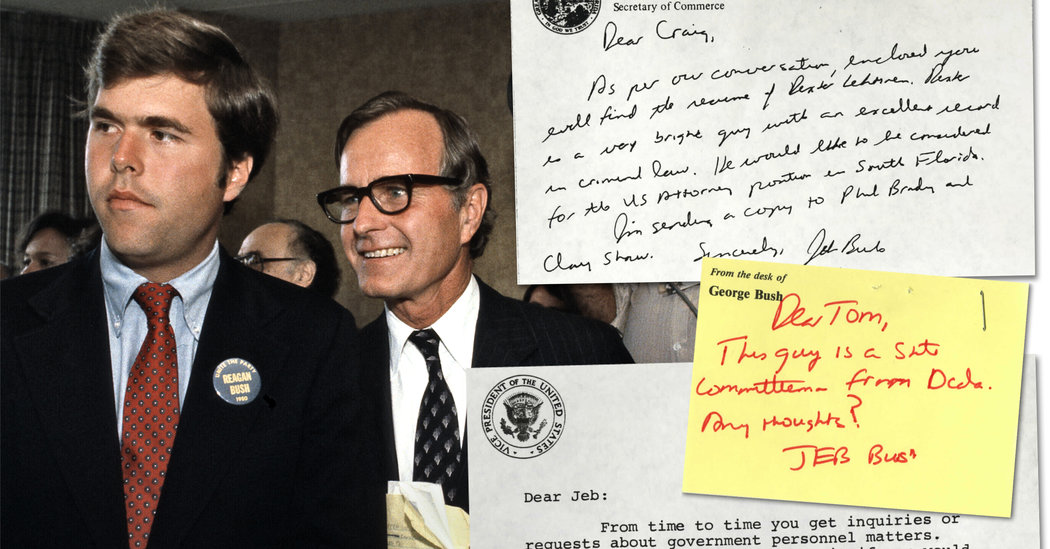 UNITE THE PARTY
REAGAN
BUSH
1980
IN GOD WE TRUST
Secretary of Commerce
Dear Craig,
As per our conversation, enclosed you
will find the resume of Dexter Lehtinen. Dexter
is a very bright guy with an excellent record
in criminal law. He would like to be considered
for the US Attorney position in South Florida.
I'm sending a copy to Phil Brady and
Clay Shaw. Sincerely, Jeb Bush
From the desk of
George Bush
Dear Tom,
This guy is a
Committeeman from Dade.
Any thoughts?
JEB Bush
VICE PRESIDENT OF THE UNITED STATES
Dear Jeb:
From time to time you get inquiries or
requests about government personnel matters.